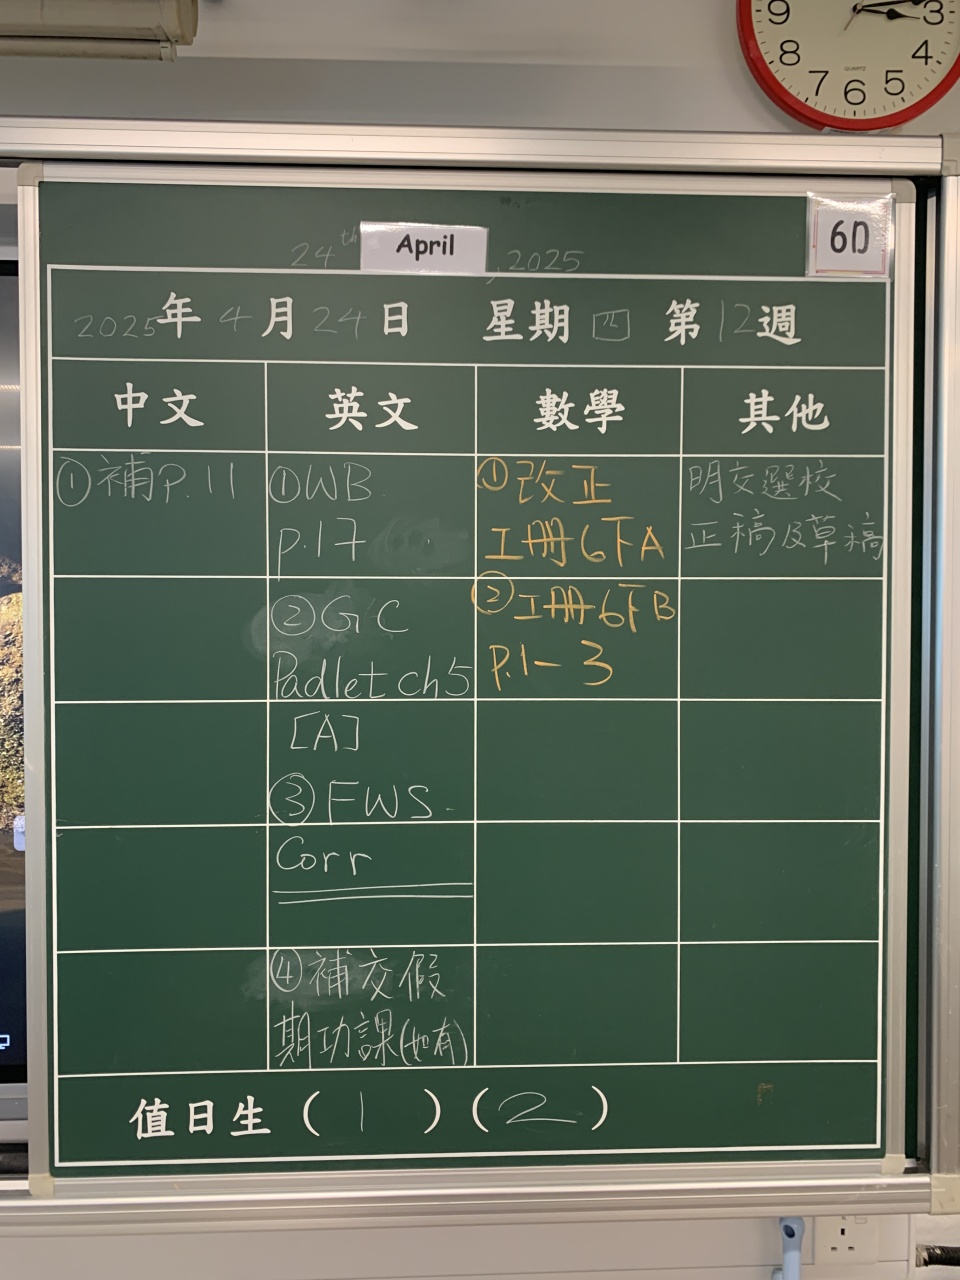 9
8
7
6
5
4
3
QUARTZ
6D
24th April, 2025
2025年4月24日 星期四 第12週
中文 英文 數學 其他
①補P.11
①WB
p.17
②GC
Padlet ch5
[A]
③FWS
Corr
④補交假
期功課(如有)
①改正
工册6下A
②工册6下B
P.1-3
明交選校
正稿及草稿
值日生(1)(2)